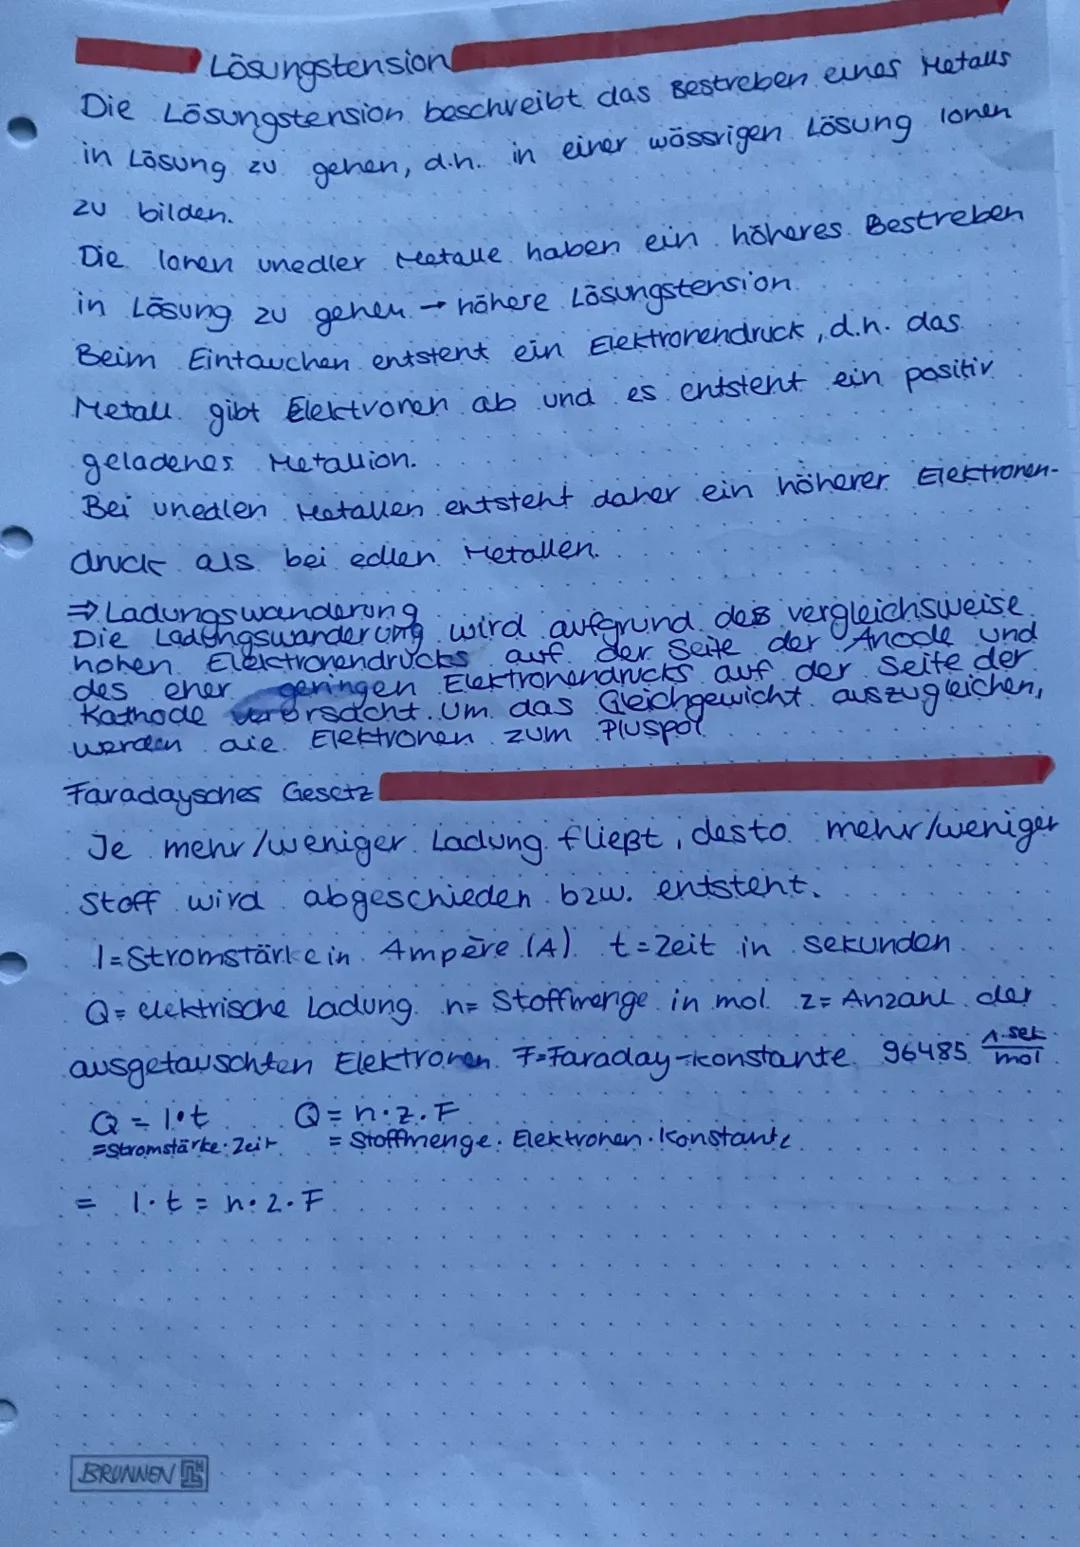 Lösungstension
Die Lösungstension beschreibt das Bestreben eines Metalls
in Lösung zu gehen, d.h. in einer wässrigen Lösung Ionen
zu bilden.
Die Ionen unedler Metalle haben ein höheres Bestreben
in Lösung zu gehen → höhere Lösungstension
Beim Eintauchen entsteht ein Elektronendruck, d.h. das
Metall gibt Elektronen ab und es entsteht ein positiv
geladenes Metallion.
Bei unedlen Metallen entsteht daher ein höherer Elektronen-
druck als bei edlen Metallen.
⇒ Ladungswanderung
Die Ladungswanderung wird aufgrund des vergleichsweise
hohen Elektronendrucks auf der Seite der Anode und
des eher geringen Elektronendrucks auf der Seite der
Kathode verursacht. Um das Gleichgewicht auszugleichen,
werden die Elektronen zum Pluspol
Faradaysches Gesetz
Je mehr/weniger Ladung fließt, desto mehr/weniger
Stoff wird abgeschieden bzw. entsteht.
I=Stromstärke in Ampère (A). t=Zeit in Sekunden
Q= elektrische Ladung n= Stoffmenge in mol z= Anzahl der
ausgetauschten Elektronen F=Faraday-Konstante 96485 A·sek/mol
Q = I·t Q = n·z·F
=Stromstärke·Zeit = Stoffmenge·Elektronen·Konstante
= I·t = n·z·F
BRUNNEN